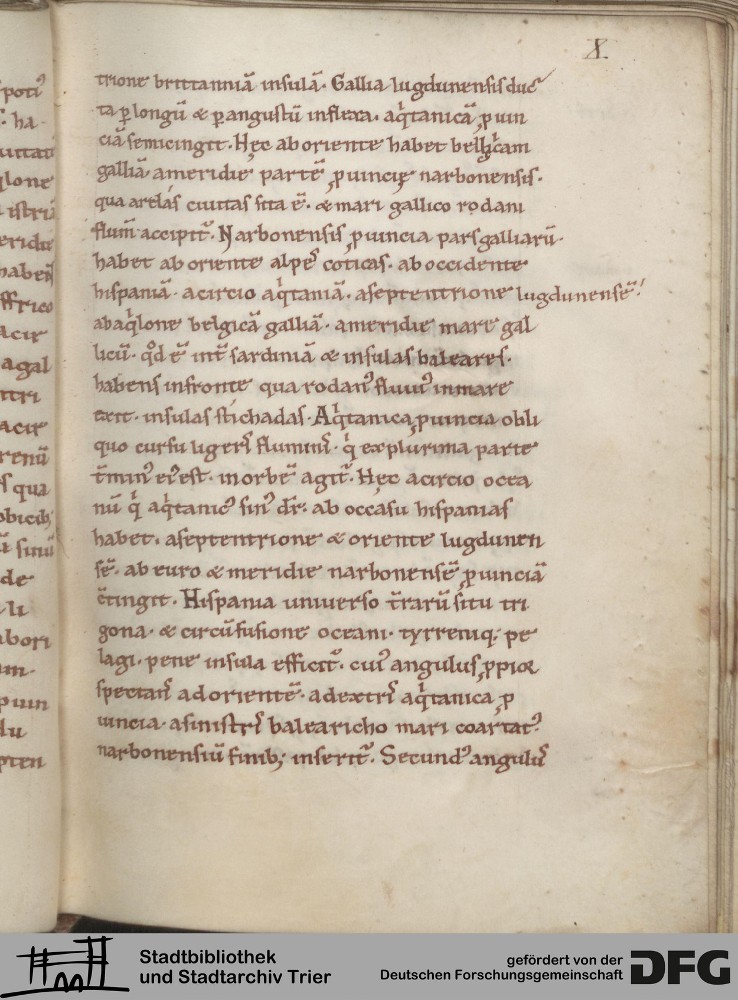 X.
trione brittanniā insulā. Gallia lugdunensis duc̄
ta ꝑ longū & ꝑ angustū inflexa. aq̇tanicā ꝓuin
ciā semicingit. Hęc ab oriente habet belgicam
galliā. a meridie partē ꝓuincię narbonensis.
qua arelas ciuitas sita ē. & mari gallico rodani
flum̄ accipit̄. Narbonensis ꝓuincia pars galliarū.
habet ab oriente alpeˢ coticas. ab occidente
hispaniā. a circio aq̇taniā. a septentrione lugdunensē.
ab aq̇lone belgicā galliā. a meridie mare gal
licū. qd̄ ē int̄ sardiniā & insulas baleares.
habens in fronte qua rodanꝰ fluuiꝰ in mare
exit. insulas stichadas. Aq̇tanica ꝓuincia obli
quo cursu ligerˢ fluminˢ. q̇ ex plurima parte
t̄minꝰ eiꝰ est. in orbē agit̄. Hęc a circio ocea
nū q̇ aq̇tanicꝰ sinꝰ dr̄. ab occasu hispanias
habet. a septentrione & oriente lugdunen
sē. ab euro & meridie narbonensē ꝓuinciā
c̄tingit. Hispania uniuerso t̄rarū situ tri
gona. & circūfusione oceani. tyrreniq; pe
lagi. pene insula efficit̄. cuiꝰ angulus ꝓpior
spectanˢ ad orientē. a dextrˢ aq̇tanica ꝓ
uincia. a sinistrˢ balearicho mari coartatꝰ.
narbonensiū finib; inserit̄. Secundꝰ angulꝰ
Stadtbibliothek
und Stadtarchiv Trier
gefördert von der
Deutschen Forschungsgemeinschaft
DFG